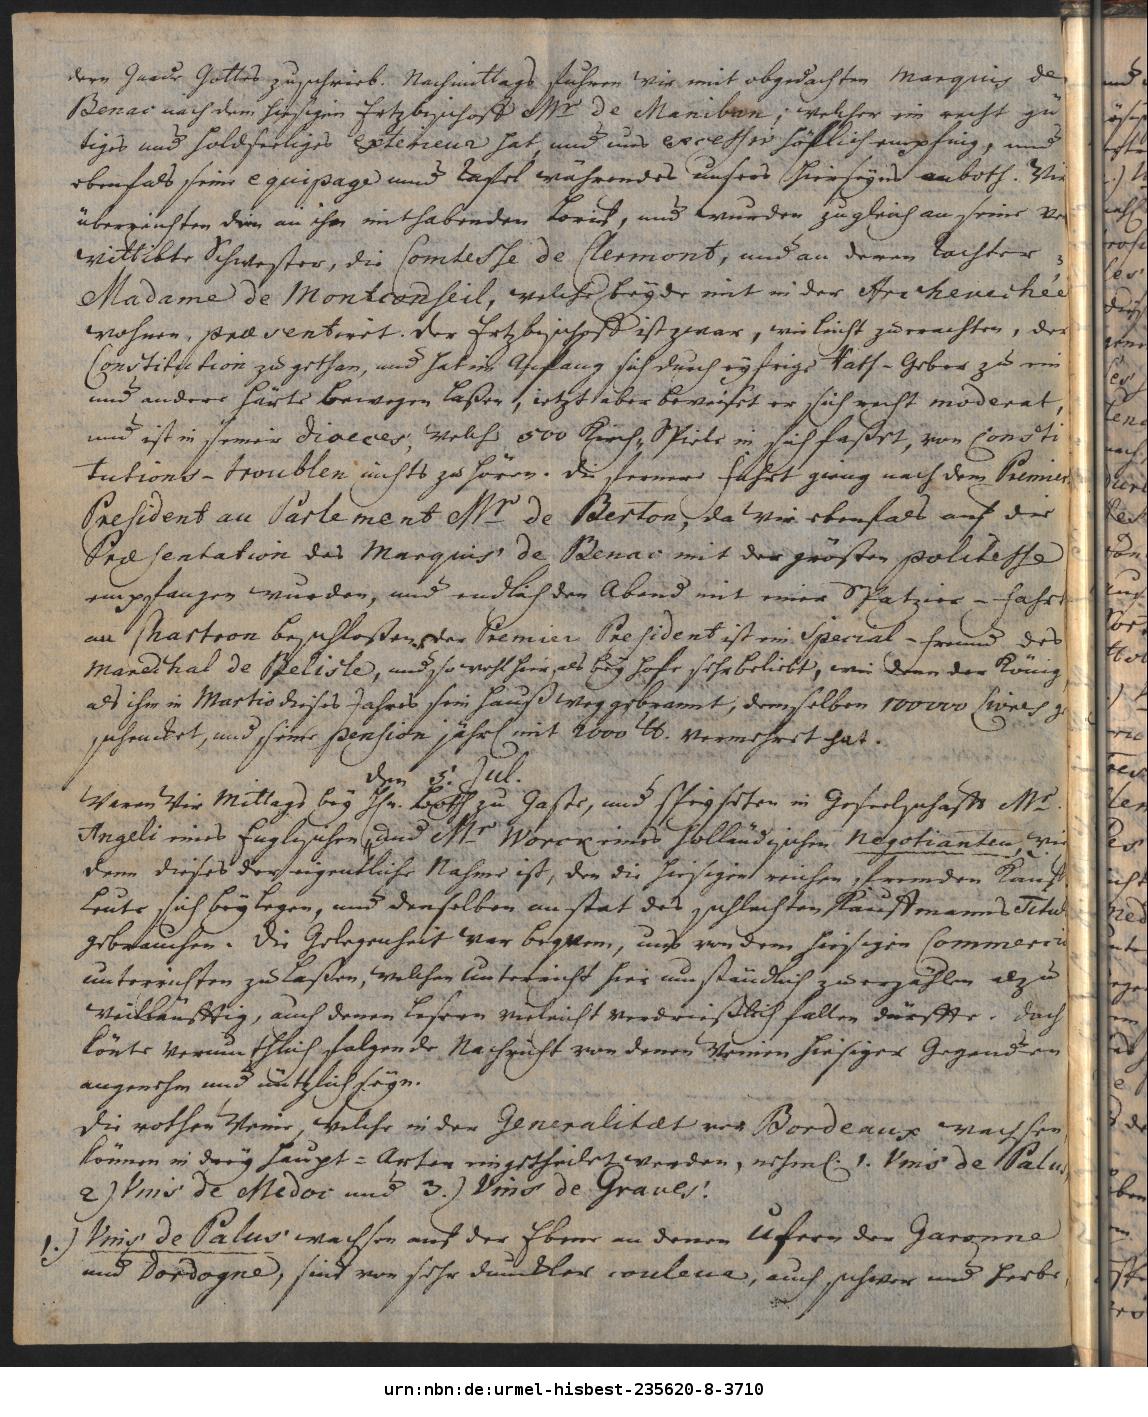 dern Gnade Gottes zuschrieb. Nachmittags fuhren wir mit obgedachten Marquis de
Benac nach dem hiesigen Ertzbischoff Mr. de Maniban, welcher ein recht gü
tiges und holdseeliges exterieur hat, und uns excessiv höfflich empfing, und
ebenfals seine equipage und Tafel während unsers Hierseyns anboth. Wir
überreichten den an ihn mithabenden Brief, und wurden zugleich an seine ver
wittibte Schwester, die Comtesse de Clermont, und an deren Tochter
Madame de Montconseil, welche beyde mit in der Archeveché
wohnen, præsentiret. Der Ertzbischoff ist zwar, wie leicht zu erachten, der
Constitution zugethan, und hat im Anfang sich durch eyfrige Rath-Geber zu ein
und andere Härte bewegen laßen, ietzt aber beweiset er sich recht moderat,
und ist in seiner dioeces, welche 500 Kirch-Spiele in sich faßet, von Consti
tutions-troublen nichts zu hören. Die fernere Fahrt gieng nach dem Premier
President au Parlement Mr. de Berton, da wir ebenfals auf die
Præsentation des Marquis de Benac mit der grösten politesse
empfangen wurden, und endlich den Abend mit einer Spatzier-Fahrt
au Chartron beschloßen. Der Premier President ist ein Special-Freund des
Marechal de Belisle, und so wohl hier, als bey Hofe sehr beliebt, wie denn der König,
als ihm in Martio dieses Jahres sein Hauß weggebrannt, demselben 100000 Livres ge
schencket, und seine pension jährl. mit 2000 tt. vermehret hat.
den 5. Jul.
Waren wir Mittags bey Hn. Both zu Gaste, und speiseten in Gesellschafft Mr.
Angeli eines Englischen, und Mr. Worck eines Holländischen Negotianten, wie
denn dieses der eigentliche Nahme ist, den die hiesigen reichen, fremden Kauf
Leute sich beylegen, und denselben anstat des schlechten Kauffmanns Titul
gebrauchen. Die Gelegenheit war bequem, uns von dem hiesigen Commercio
unterrichten zu laßen, welchen Unterricht hier umständlich zu erzählen alzu
weitläufftig, auch denen Lesern vieleicht verdrießlich fallen dürffte. Doch
könte vermuthlich folgende Nachricht von denen Weinen hiesiger Gegenden
angenehm und nützlich seyn.
Die rothen Weine, welche in der Generalitæt von Bordeaux wachsen,
können in drey Haupt-Arten eingetheilet werden, nehml. 1. Vins de Palus,
2) Vins de Medoc und 3.) Vins de Graves.
1.) Vins de Palus wachsen auf der Ebene an denen Ufern der Garonne
und Dordogne, sind von sehr dunckler couleur, auch schwer und herbe,
urn:nbn:de:urmel-hisbest-235620-8-3710